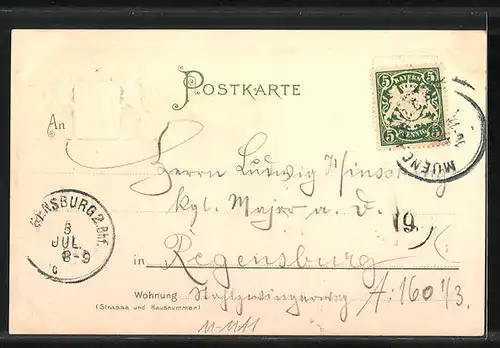 POSTKARTE
BAYERN
5 5
5 5
PFENNIG
An
Herrn Ludwig
MUENC
kgl. Major a. D.
GENSBURG 2. Bhf.
8
JUL.
8-9
C
in Regensburg
Wohnung A. 160 1/3
(Strasse und Hausnummer)